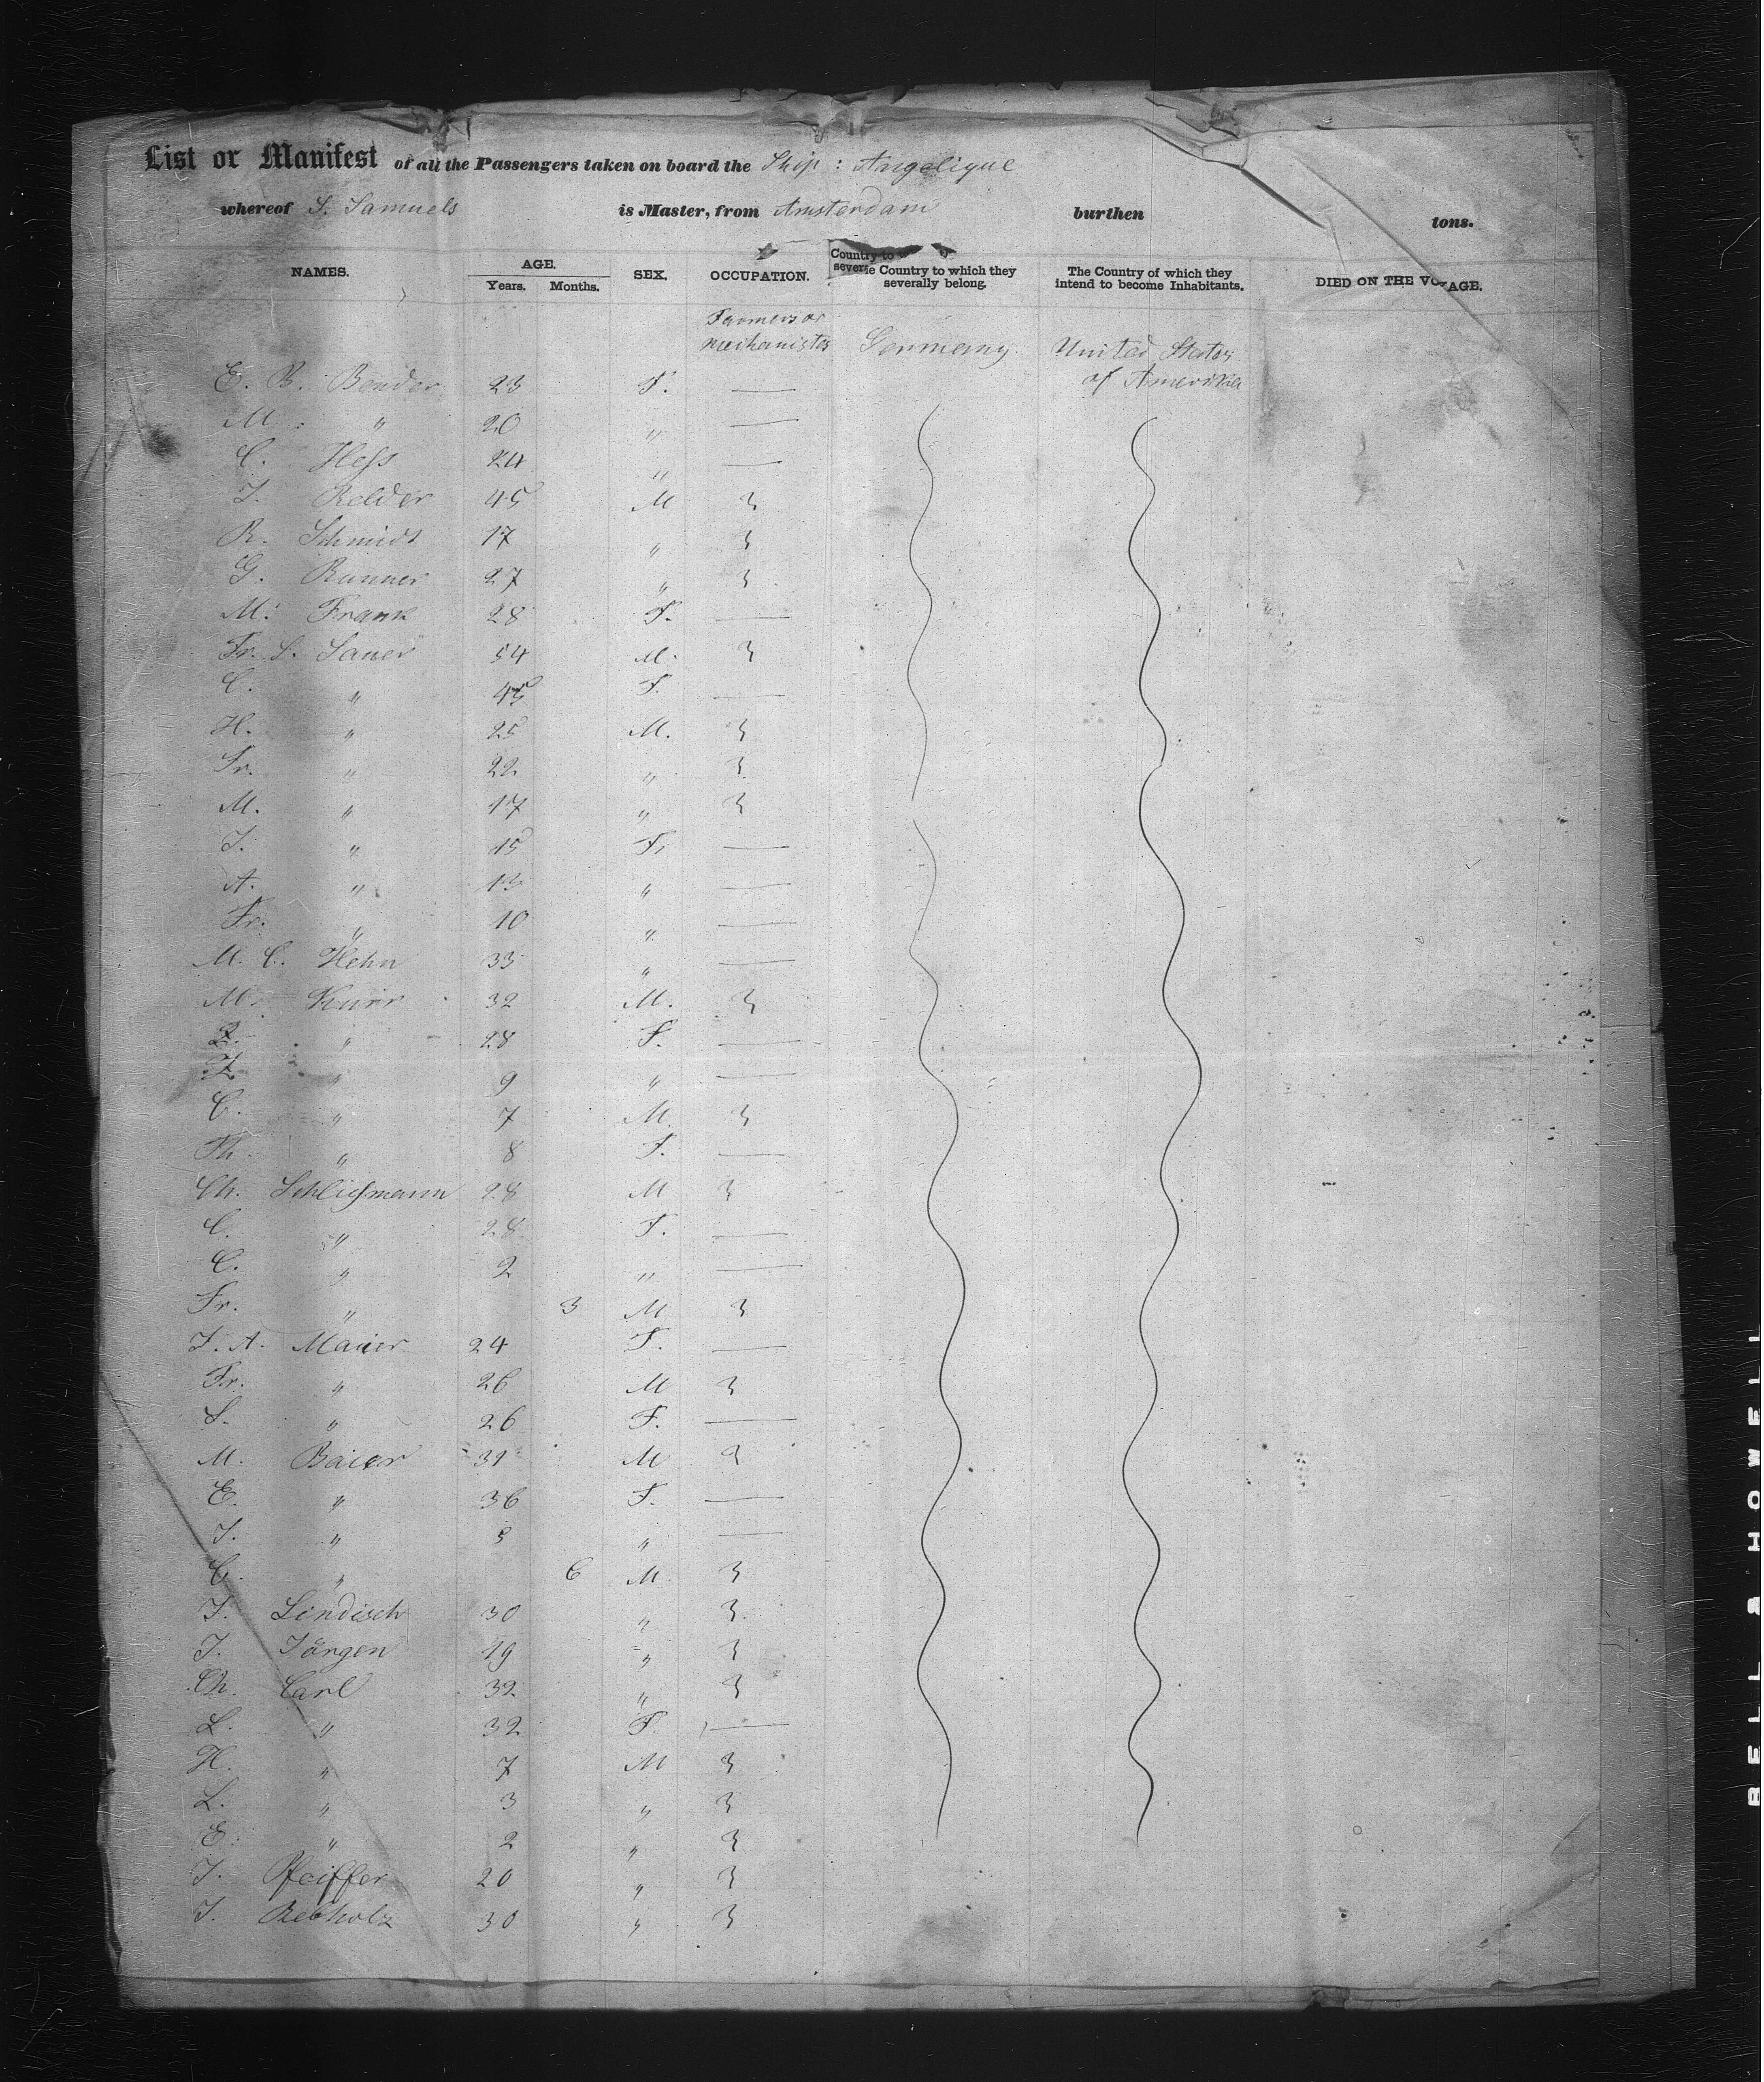 List or Manifest of all the Passengers taken on board the Ship : Angelique
whereof S. Samuels is Master, from Amsterdam burthen tons.
NAMES. AGE. Years. Months. SEX. OCCUPATION. Country to severe Country to which they severally belong. The Country of which they intend to become Inhabitants. DIED ON THE VOYAGE.
Farmers or mechanistes Germany. United States of Amerika
E. B. Bender 23 F. —
M. " 20 " —
C. Hess 24 " —
J. Relder 45 M 3
R. Schmidt 17 " 3
G. Runner 27 " 3
M. Frank 28 F. —
Fr. S. Sauer 54 M. 3
C. " 45 F. —
H. " 25 M. 3
Fr. " 22 " 3
M. " 17 " 3
J. " 15 F. —
A. " 13 " —
Fr. " 10 " —
M. C. Hehn 33 " —
M. Kurr 32 M. 3
" 28 F. —
" 9 " —
C. " 7 M. 3
Th. " 8 F. —
Ch. Schlissmann 28 M 3
C. " 28 F. —
C. " 2 " —
Fr. " 3 M 3
J. A. Maier 24 F. —
Fr. " 26 M 3
S. " 26 F. —
M. Baier 31 M 3
E. " 36 F. —
J. " 5 " —
C. " 6 M. 3
J. Lindisch 30 " 3
J. Jörgen 19 " 3
Ch. Carl 32 " 3
L. " 32 F. —
H. " 7 M 3
L. " 3 " 3
E. " 2 " 3
J. Pfeiffer 20 " 3
J. Rebholz 30 " 3
BELL & HOWELL